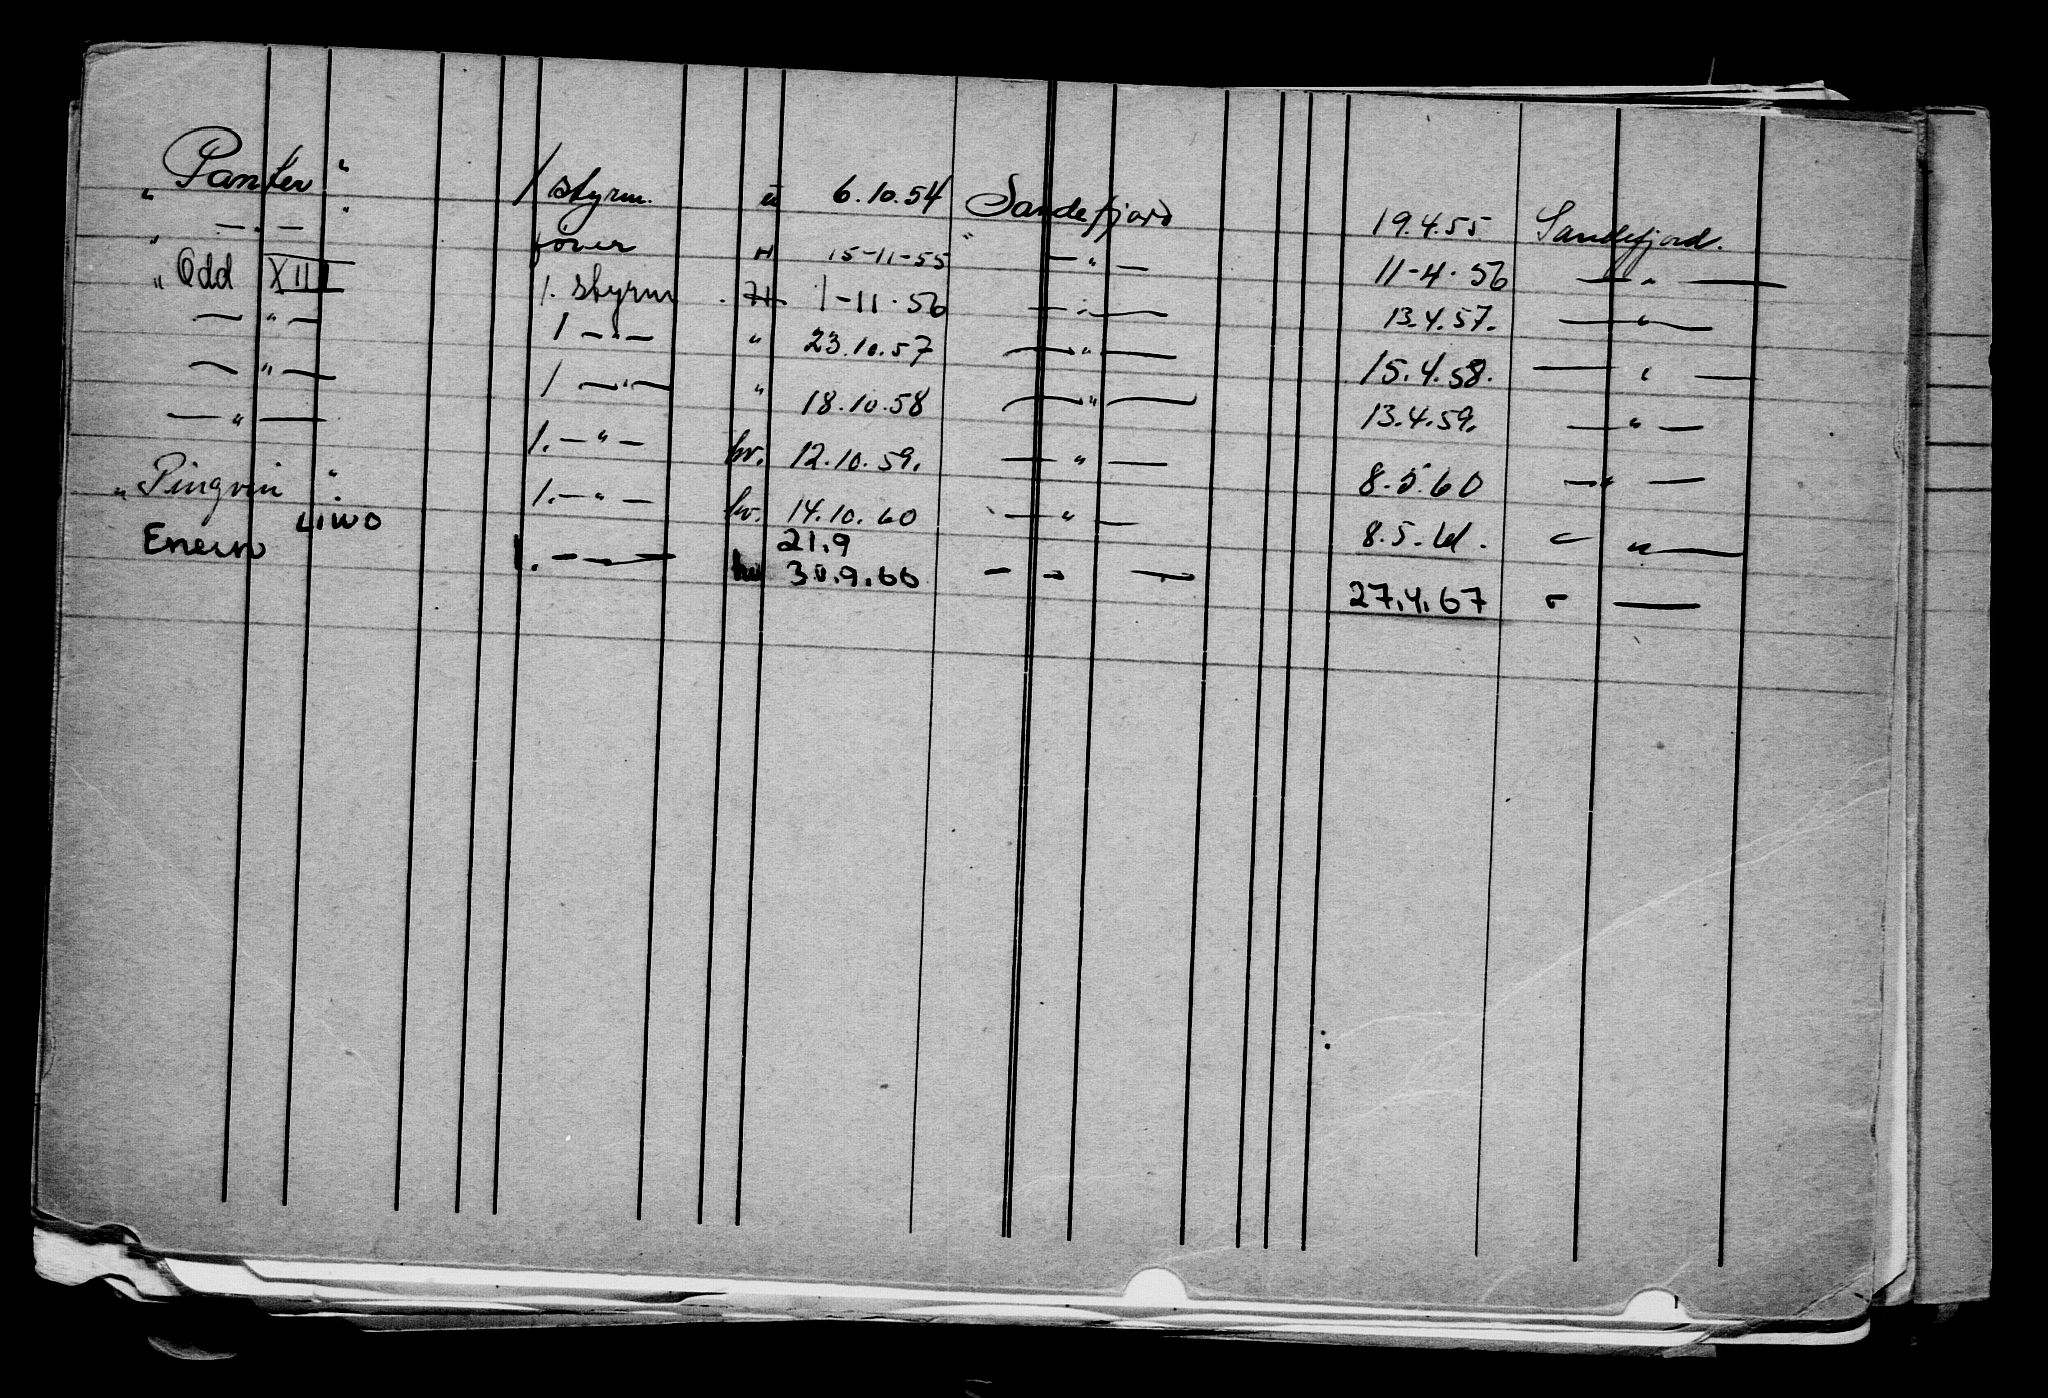 „ Panter " 1 styrm. u 6.10.54 Sandefjord 19.4.55 Sandefjord.
" — " — fører H 15-11-55 — " — 11-4.56 — " —
„ Odd XII 1. styrm . H 1-11.56 — " — 13.4.57. — " —
— " — 1 — " — " 23.10.57 — " — 15.4.58. — " —
— " — 1 — " — " 18.10.58 — " — 13.4.59. — " —
— " — 1. — " — hv. 12.10.59. — " — 8.5.60 — " —
„ Pingvin " 1. — " — hv. 14.10.60 — " — 8.5.61. — " —
LIWO 21.9
Enern 1. — " — 30.9.66 — " — 27.4.67 — " —